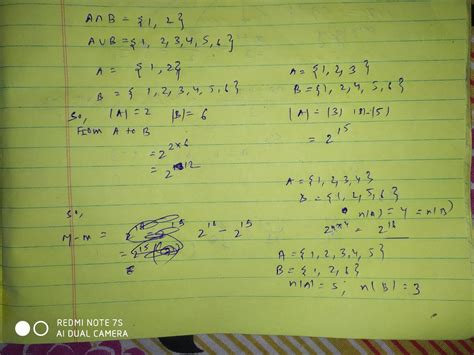 A∩B = {1, 2}
A∪B = {1, 2, 3, 4, 5, 6}
A = {1, 2}
B = {1, 2, 3, 4, 5, 6}
So, |A| = 2 |B| = 6
From A to B
= 2^{2×6}
= 2^{12}
A = {1, 2, 3}
B = {1, 2, 4, 5, 6}
|A| = |3| |B| = |5|
= 2^{15}
A = {1, 2, 3, 4}
B = {1, 2, 5, 6}
n(A) = 4 = n(B)
2^{4×4} = 2^{16}
A = {1, 2, 3, 4, 5}
B = {1, 2, 6}
n(A) = 5; n(B) = 3
So,
M-m = 2^{16} - 2^{15}
REDMI NOTE 7S
AI DUAL CAMERA